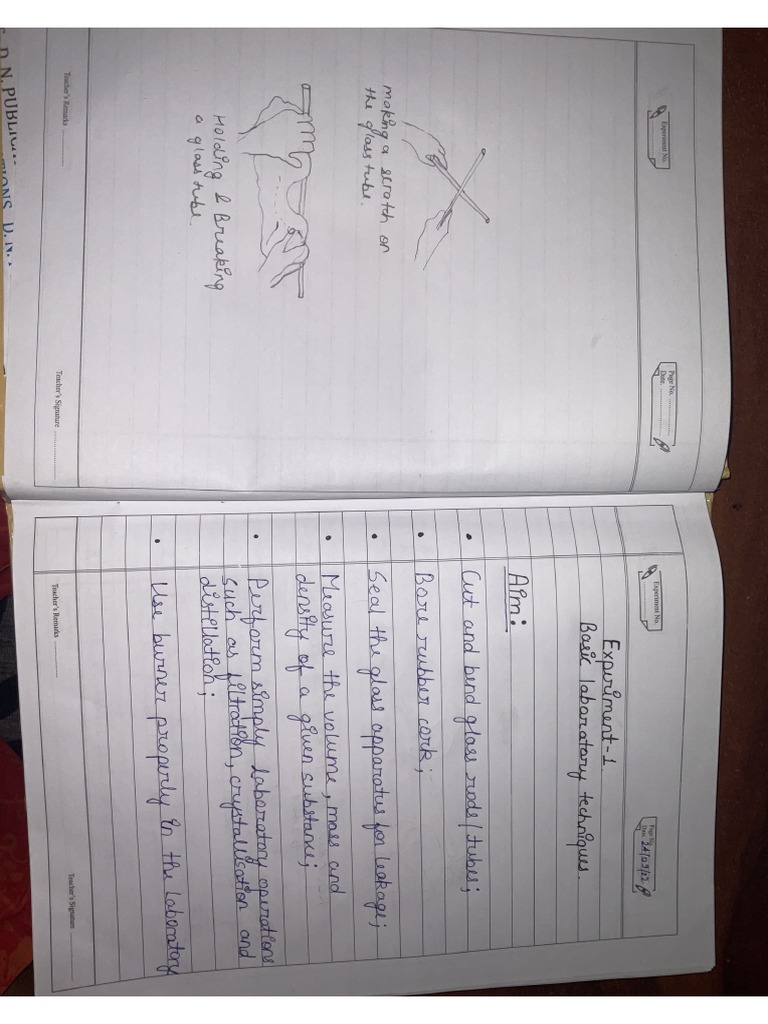 Experiment No.
Page No.
Date.
making a scratch on
the glass tube.
Holding & Breaking
a glass tube.
Teacher's Remarks
Teacher's Signature
D. N. PUBLICATIONS D.N.
Experiment No.
Page No.
Date
Experiment-1.
Basic laboratory techniques.
Aim:
• Cut and bend glass rods/tubes;
• Bore rubber cork;
• Seal the glass apparatus for leakage;
• Measure the volume, mass and
density of a given substance;
• Perform simply laboratory operations
such as filtration, crystallisation and
distillation;
• Use burner properly in the laboratory
Teacher's Remarks
Teacher's Signature